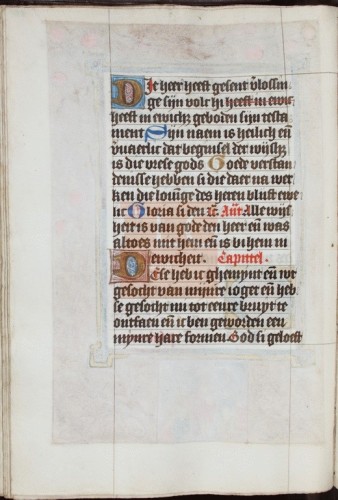 Die heer heeft gesent vlossin
ge sijn volc hi heeft in ewic
heeft in ewich geboden sijn testa
ment Sijn naem is heilich eñ
vvaerlic dat beginsel der wijsh
is die vrese gods Goede verstan
denisse hebben si die daer na wer
ken die louinge des heren blijft ewe
lic Gloria si den Añt Alle wijs
heit is van gode den heer eñ was
altoes mit hem eñ is bi hem in
ewicheit Capittel
Dese heb ic ghemynt eñ wt
gesocht van mijnre ioget eñ heb
se gesocht mi tot eenre bruyt te
ontfaen eñ ic ben geworden een
mynre hare formen God si geloeft